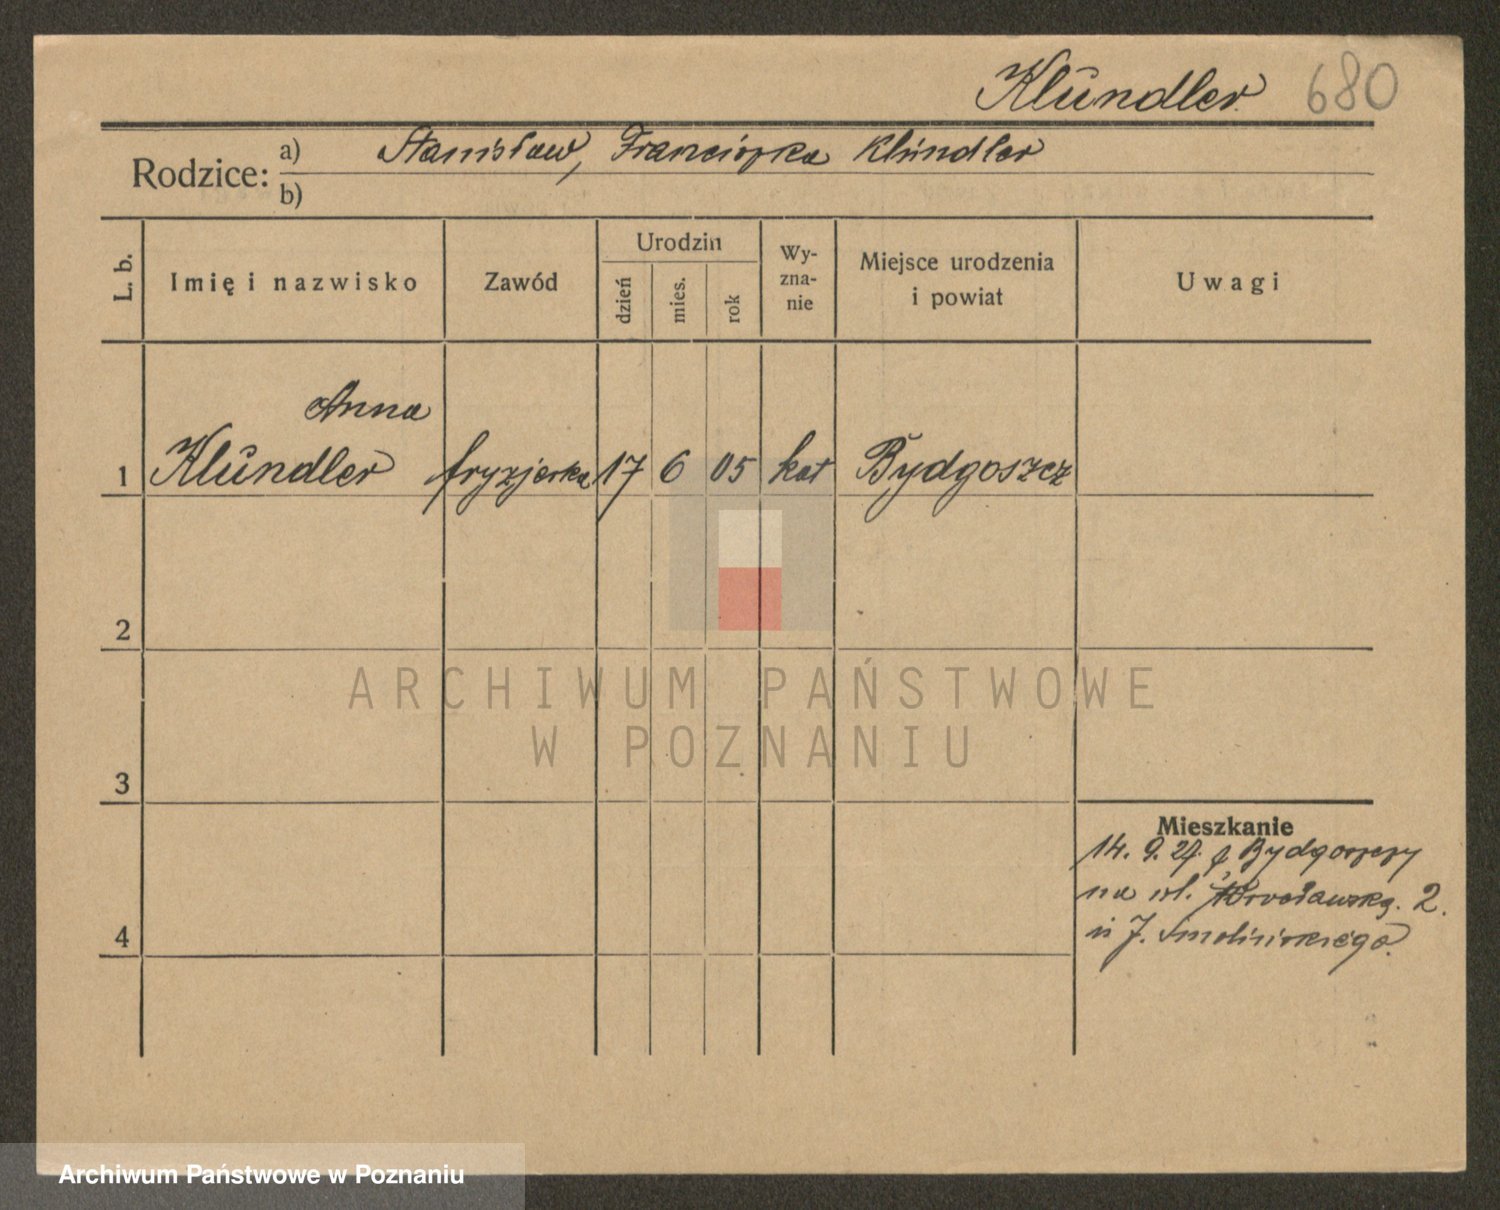 Klŭndler 680
Rodzice: a) Stanisław, Franciszka Klŭndler
b)
L. b. Imię i nazwisko Zawód Urodzin dzień mies. rok Wyzna-nie Miejsce urodzenia i powiat Uwagi
Anna
1 Klŭndler fryzjerka 17 6 05 kat Bydgoszcz
2
ARCHIWUM PAŃSTWOWE
W POZNANIU
3
Mieszkanie
14. 9. 27. z Bydgoszczy
na ul. Wrocławską. 2.
4
u J. Smolińskiego.
Archiwum Państwowe w Poznaniu